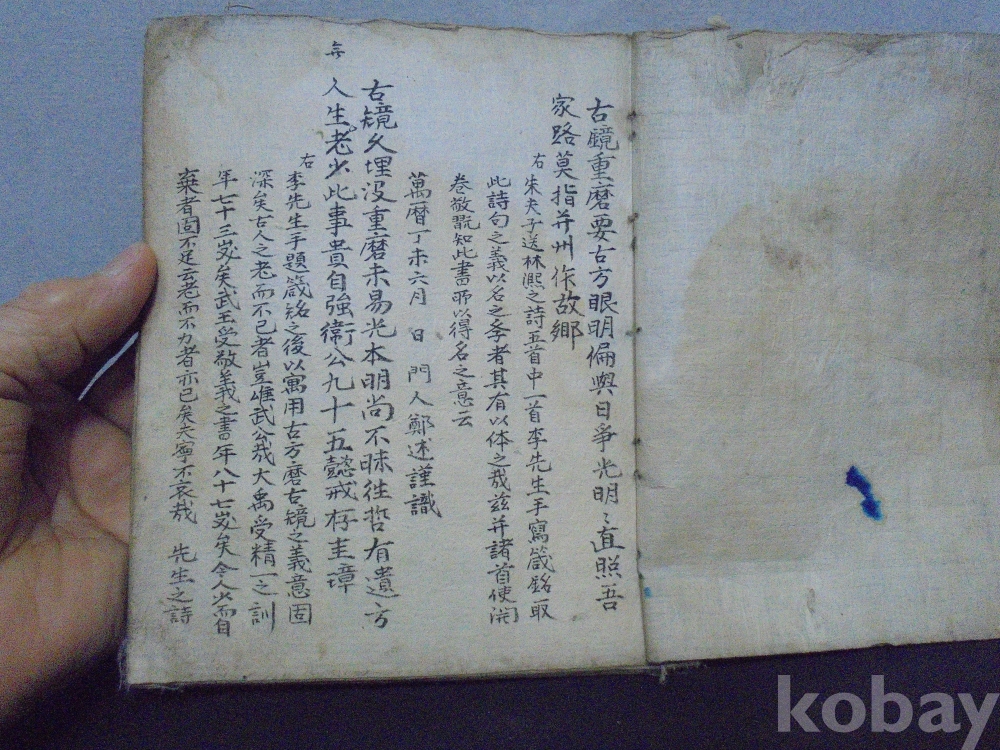 古鏡重磨要古方眼明偏與日爭光明〻直照吾
家路莫指并州作故鄉
右朱夫子送林熙之詩五首中一首李先生手寫箴銘取
此詩句之義以名之季者其有以体之哉玆并諸首使開
卷敬翫知此書所以得名之意云
萬曆丁未六月 日 門人鄭逑謹識
古鏡久埋沒重磨未易光本明尚不昧徃哲有遺方
人生老少此事貴自強衛公九十五懿戒存圭璋
無
右李先生手題箴銘之後以寓用古方磨古鏡之義意固
深矣古人之老而不已者豈惟武公哉大禹受精一之訓
年七十三歲矣武王受敬義之書年八十七歲矣今人少而自
棄者固不足云老而不力者亦已矣夫寧不哀哉 先生之詩
kobay